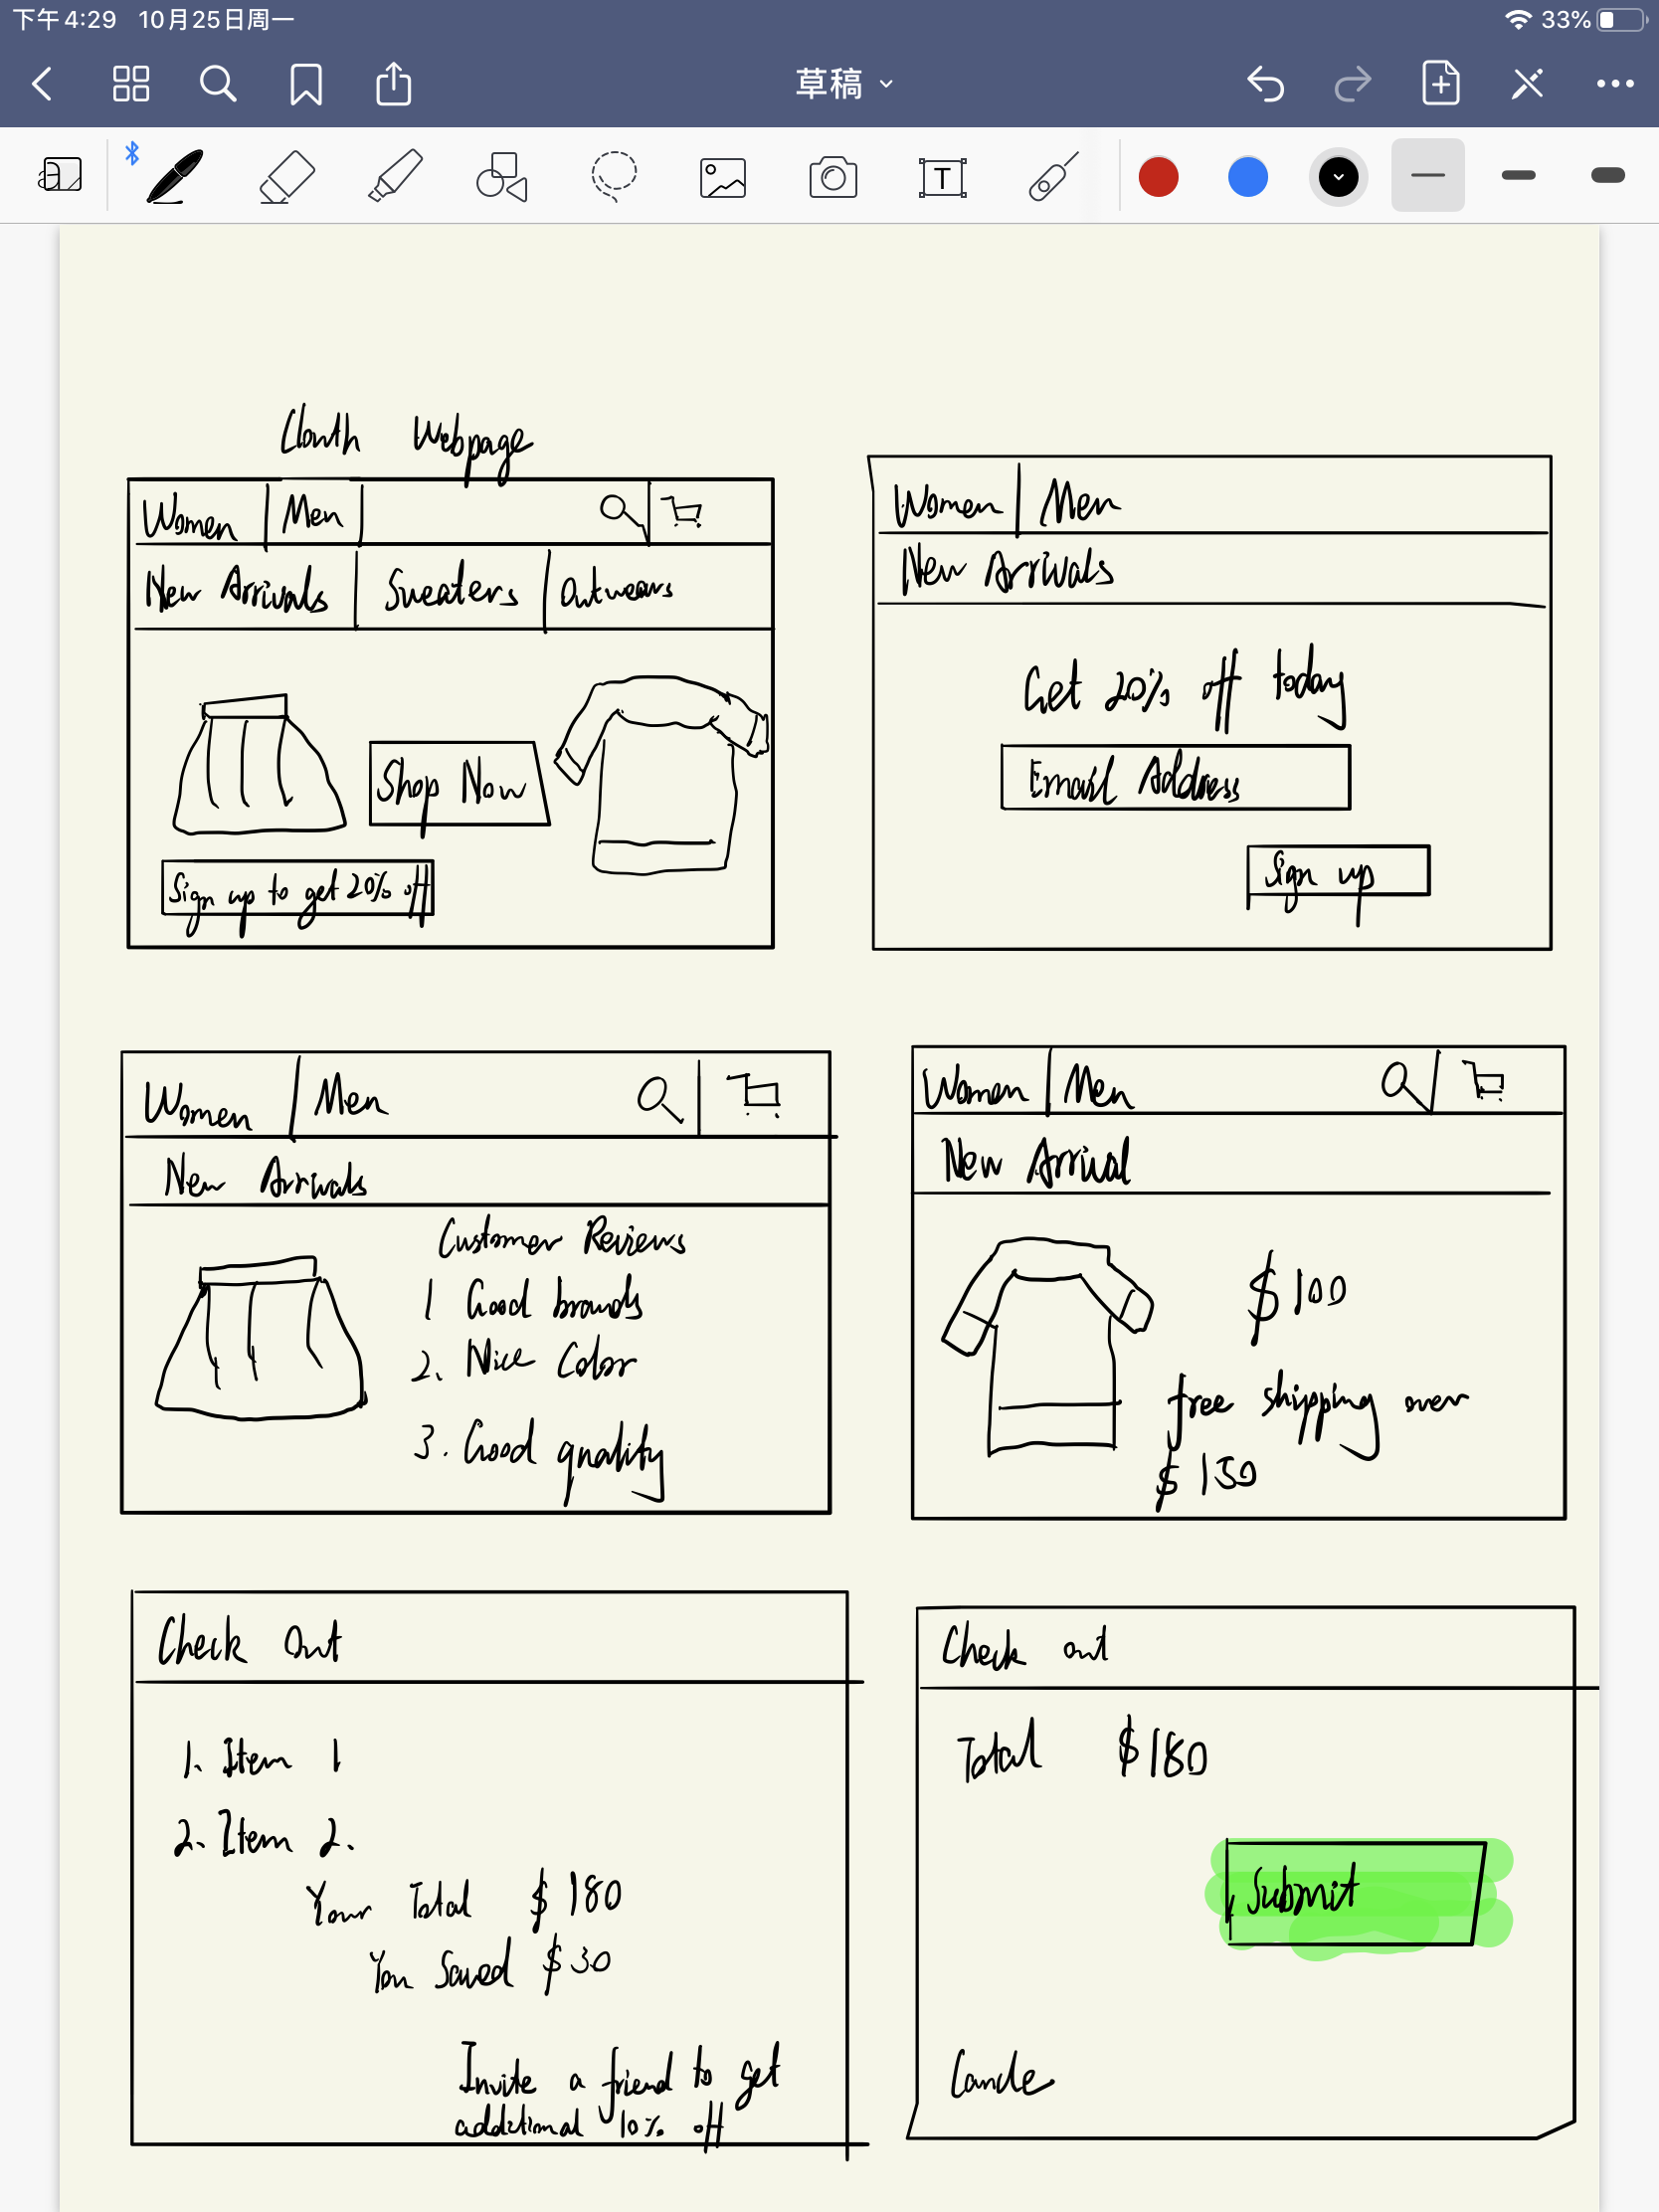 下午4:29 10月25日周一
33%
草稿
T
Clouth Webpage
Women Men
New Arrivals Sweaters Outwears
Shop Now
Sign up to get 20% off
Women Men
New Arrivals
Get 20% off today
Email Address
Sign up
Women Men
New Arrivals
Customer Reviews
1 Good brands
2. Nice Color
3. Good quality
Women Men
New Arrival
$100
free shipping over
$150
Check Out
1. Item 1
2. Item 2.
Your Total $180
You Saved $30
Invite a friend to get
additional 10% off
Check out
Total $180
Submit